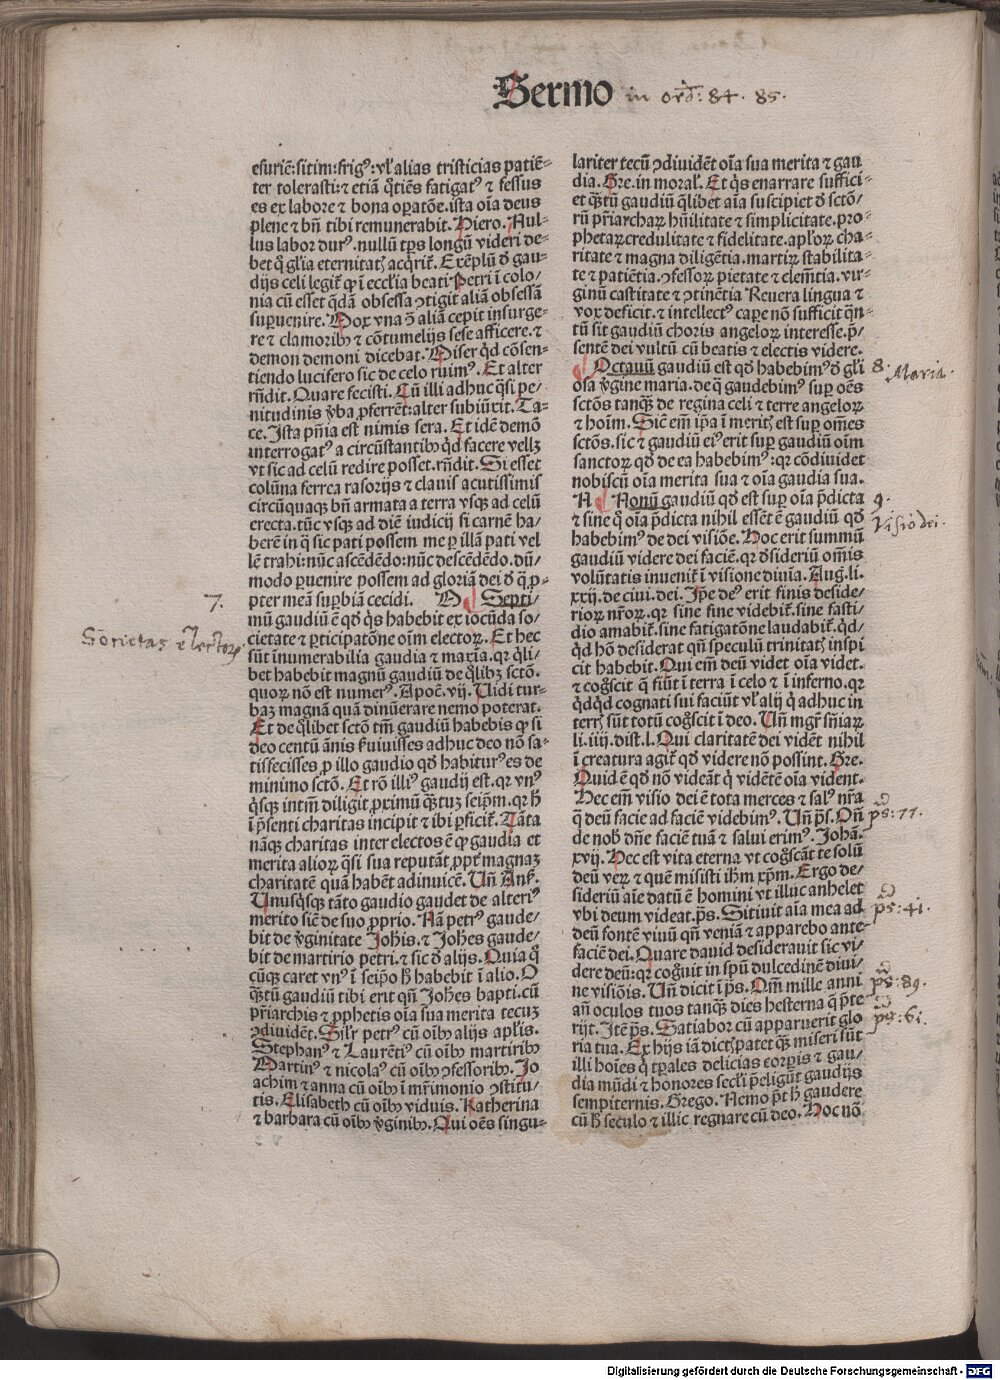 Sermo in ord: 84. 85.
esuriē:sitim:frigꝰ:vl' alias tristicias patiē-
ter tolerasti:⁊ etiā q̄tiēs fatigatꝰ ⁊ fessus
es ex labore ⁊ bona oꝑatōe.ista oīa deus
plene ⁊ bn̄ tibi remunerabit. Hiero. Nul-
lus labor durꝰ.nullū tp̄s longū videri de-
bet q̄ gl'ia eternitatꝭ acq̄rit̄. Exēplū ō gau-
dijs celi legit̄ ꝙ ī eccl'ia beati Petri ī colo/
nia cū esset q̄dā obsessa ↄtigit aliā obsessā
suꝑuenire. Mox vna ↄ̄ aliā cepit insurge-
re ⁊ clamoribꝫ ⁊ cōtumelijs sese afficere.⁊
demon demoni dicebat. Miser q̄d cōsen-
tiendo lucifero sic de celo ruimꝰ. Et alter
rn̄dit. Quare fecisti. Cū illi adhuc q̄si pe/
nitudinis v̄ba ꝓferrēt:alter subiūxit. Ta-
ce. Ista pn̄ia est nimis sera. Et idē demō
interrogatꝰ a circūstantibꝫ q̄d facere vellꝫ
vt sic ad celū redire posset.rn̄dit. Si esset
colūna ferrea rasorijs ⁊ clauis acutissimis
circūquaqꝫ bn̄ armata a terra vsqꝫ ad celū
erecta.tūc vsqꝫ ad diē iudicij si carnē ha/
berē in q̄ sic pati possem me ꝑ illā pati vel
lē trahi:nūc ascēdēdo:nūc descēdēdo.dū/
modo ꝑuenire possem ad gloriā dei ō q̄ ꝓ-
pter meā suꝑbiā cecidi. O Septi/
mū gaudiū ē qđ q̄s habebit ex iocūda so/
cietate ⁊ ꝑticipatōne oīm electoꝝ. Et hec
sūt īnumerabilia gaudia ⁊ maxīa.qꝛ q̄li-
bet habebit magnū gaudiū de q̄libꝫ sctō.
quoꝝ nō est numerꝰ. Apoc̄. vij. Uidi tur-
baꝫ magnā quā dinūerare nemo poterat.
Et de q̄libet sctō tm̄ gaudiū habebis ꝙ si
deo centū ānis ẜuiuisses adhuc deo nō sa-
tisfecisses ꝑ illo gaudio qđ habiturꝰ es de
minimo sctō. Et rō illiꝰ gaudij est.qꝛ vnꝰ
q̄sqꝫ intm̄ diligit ꝓximū q̄ꝫtuꝫ seip̄m.qꝛ h̄
ī p̄senti charitas incipit ⁊ ibi ꝑficit̄. Tāta
nāqꝫ charitas inter electos ē ꝙ gaudia et
merita alioꝝ q̄si sua reputāt ꝓpt̄ magnaꝫ
charitatē quā habēt adinuicē. Un̄ Ans̄.
Unusq̄sqꝫ tāto gaudio gaudet de alteriꝰ
merito sic̄ de suo ꝓprio. Nā petrꝰ gaude/
bit de v̄ginitate Joh̄is.⁊ Joh̄es gaude/
bit de martirio petri.⁊ sic ō alijs. Quia q̄
cūqꝫ caret vnꝰ ī seip̄o h̄ habebit ī alio. O
q̄ꝫtū gaudiū tibi erit qn̄ Joh̄es bapti.cū
pr̄iarchis ⁊ ꝓphetis oīa sua merita tecuꝫ
ↄdiuidēt. Sil'r petrꝰ cū oībꝫ alijs apl'is.
Stephanꝰ ⁊ Laurētiꝰ cū oībꝫ martiribꝫ
Martinꝰ ⁊ nicolaꝰ cū oībꝫ ↄfessoribꝫ. Jo
achim ⁊ anna cū oībꝫ ī mr̄imonio ↄstitu/
tis. Elisabeth cū oībꝫ viduis. Katherina
⁊ barbara cū oībꝫ v̄ginibꝫ. Qui oēs singu-
7.
Sōcietas electorꝝ
lariter tecū ↄdiuidēt oīa sua merita ⁊ gau
dia. Gre. in moral'. Et q̄s enarrare suffici-
et q̄ꝫtū gaudiū q̄libet aīa suscipiet ō sctō/
rū pr̄iarchaꝝ hūilitate ⁊ simplicitate.pro-
phetaꝝ credulitate ⁊ fidelitate.apl'oꝝ cha-
ritate ⁊ magna diligētia.martiꝝ stabilita-
te ⁊ patiētia.ↄfessoꝝ pietate ⁊ clemētia.vir-
ginū castitate ⁊ ↄtinētia Reuera lingua ⁊
vox deficit.⁊ intellectꝰ caꝑe nō sufficit qn̄-
tū sit gaudiū choris angeloꝝ interesse.p̄/
sentē dei vultū cū beatis ⁊ electis videre.
Octauū gaudiū est qđ habebimꝰ ō gl'i
osa v̄gine maria.de q̄ gaudebimꝰ suꝑ oēs
sctōs tanqꝫ̄ de regina celi ⁊ terre angeloꝝ
⁊ hoīm. Sic̄ em̄ ip̄a ī meritꝭ est suꝑ omēs
sctōs.sic ⁊ gaudiū eiꝰ erit suꝑ gaudiū oīm
sanctoꝝ qđ de ea habebimꝰ:qꝛ cōdiuidet
nobiscū oīa merita sua ⁊ oīa gaudia sua.
N Nonū gaudiū qđ est suꝑ oīa p̄dicta
⁊ sine q̄ oīa p̄dicta nihil essēt ē gaudiū qđ
habebimꝰ de dei visiōe. Hoc erit summū
gaudiū videre dei faciē.qꝛ ōsideriū om̄is
volūtatis inuenit̄ ī visione diuīa. Aug.li.
xxij.de ciui.dei. Ip̄e deꝰ erit finis deside/
rioꝝ nr̄oꝝ.qꝛ sine fine videbit̄.sine fasti/
dio amabit̄.sine fatigatōne laudabit̄.q̄d/
q̄d hō desiderat qn̄ speculū trinitatꝭ inspi
cit habebit. Qui em̄ deū videt oīa videt.
⁊ coḡscit q̄ fiūt ī terra ī celo ⁊ ī inferno.qꝛ
q̄dq̄d cognati sui faciūt vl' alij q̄ adhuc in
terrꝭ sūt totū coḡscit ī deo. Un̄ mgr̄ sn̄iaꝝ
li.iiij.dist.l. Qui claritatē dei vidēt nihil
ī creatura agit̄ qđ videre nō possint. Gre.
Quid ē qđ nō videāt q̄ vidētē oīa vident.
Hec em̄ visio dei ē tota merces ⁊ salꝰ nr̄a
q̄ deū facie ad faciē videbimꝰ. Un̄ ps̄. Oñ
de nob̄ dn̄e faciē tuā ⁊ salui erimꝰ. Johā.
xvij. Hec est vita eterna vt coḡscāt te solū
deū veꝝ ⁊ quē misisti ihm̄ xp̄m. Ergo de/
sideriū aīe datū ē homini vt illuc anhelet
vbi deum videat.ps̄. Sitiuit aīa mea ad
deū fontē viuū qn̄ veniā ⁊ apparebo ante
faciē dei. Quare dauid desiderauit sic vi/
dere deū:qꝛ coḡuit in spū dulcedinē diui/
ne visiōis. Un̄ dicit ī ps̄. Qm̄ mille anni
an̄ oculos tuos tanqꝫ̄ dies hesterna q̄ p̄te
rijt. Itē ps̄. Satiabor cū apparuerit glo
ria tua. Ex hijs iā dictꝭ patet q̄ꝫ miseri sūt
illi hoīes q̄ tp̄ales delicias corꝑis ⁊ gau/
dia mūdi ⁊ honores secl'i p̄eligūt gaudijs
sempiternis. Grego. Nemo pōt h̄ gaudere
cū h̄ seculo ⁊ illic regnare cū deo. Hoc nō
8. Maria.
9.
Visio dei.
ps: 77.
ps: 41.
ps: 89.
ps: 61.
Digitalisierung gefördert durch die Deutsche Forschungsgemeinschaft - DFG